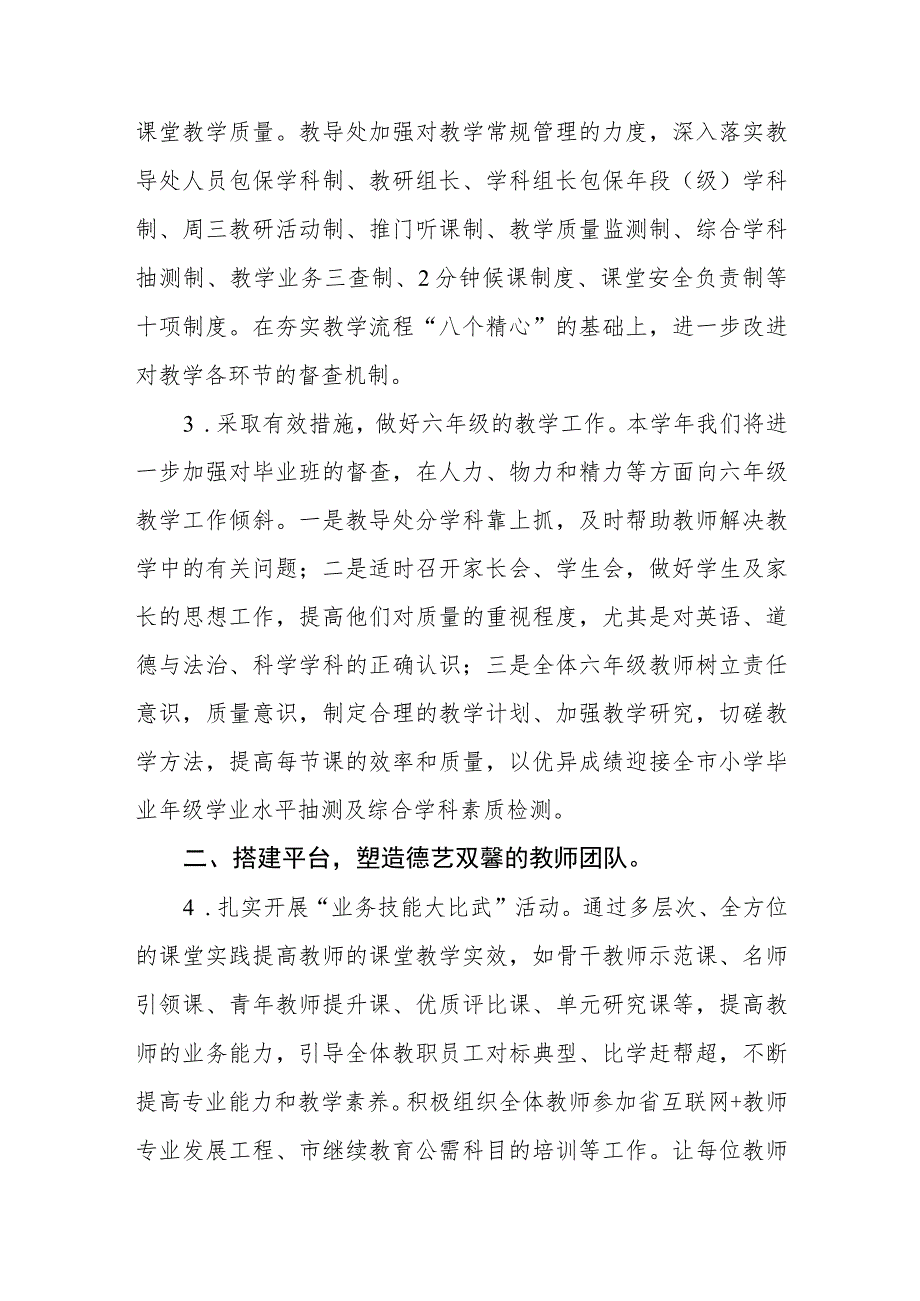 课堂教学质量。教导处加强对教学常规管理的力度，深入落实教
导处人员包保学科制、教研组长、学科组长包保年段（级）学科
制、周三教研活动制、推门听课制、教学质量监测制、综合学科
抽测制、教学业务三查制、2分钟候课制度、课堂安全负责制等
十项制度。在夯实教学流程“八个精心”的基础上，进一步改进
对教学各环节的督查机制。
3 . 采取有效措施，做好六年级的教学工作。本学年我们将进
一步加强对毕业班的督查，在人力、物力和精力等方面向六年级
教学工作倾斜。一是教导处分学科靠上抓，及时帮助教师解决教
学中的有关问题；二是适时召开家长会、学生会，做好学生及家
长的思想工作，提高他们对质量的重视程度，尤其是对英语、道
德与法治、科学学科的正确认识；三是全体六年级教师树立责任
意识，质量意识，制定合理的教学计划、加强教学研究，切磋教
学方法，提高每节课的效率和质量，以优异成绩迎接全市小学毕
业年级学业水平抽测及综合学科素质检测。
二、搭建平台，塑造德艺双馨的教师团队。
4 . 扎实开展“业务技能大比武”活动。通过多层次、全方位
的课堂实践提高教师的课堂教学实效，如骨干教师示范课、名师
引领课、青年教师提升课、优质评比课、单元研究课等，提高教
师的业务能力，引导全体教职员工对标典型、比学赶帮超，不断
提高专业能力和教学素养。积极组织全体教师参加省互联网+教师
专业发展工程、市继续教育公需科目的培训等工作。让每位教师